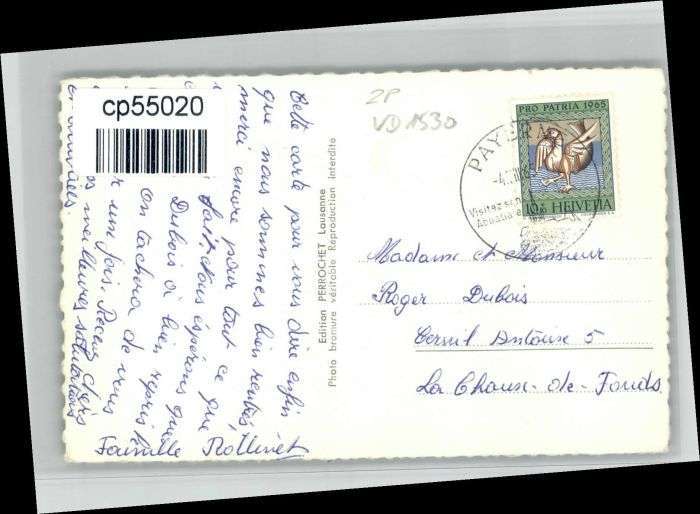 cp55020
2P
VD 1530
PRO PATRIA 1965
10+ HELVETIA
PAYER
Visitez son
Abbatia
Cette carte pour vous dire enfin
que nous sommes bien rentrés,
merci encore pour tout ce que
fait. Nous espérons que
Dubois a bien repris
On tâchera de vous
r une fois. Recevez chers
s meilleures salutations
Famille Rollinet
Edition PERROCHET Lausanne
Photo bromure véritable Reproduction interdite
Madame et Monsieur
Roger Dubois
Cernil Antoine 5
La Chaux-de-Fonds